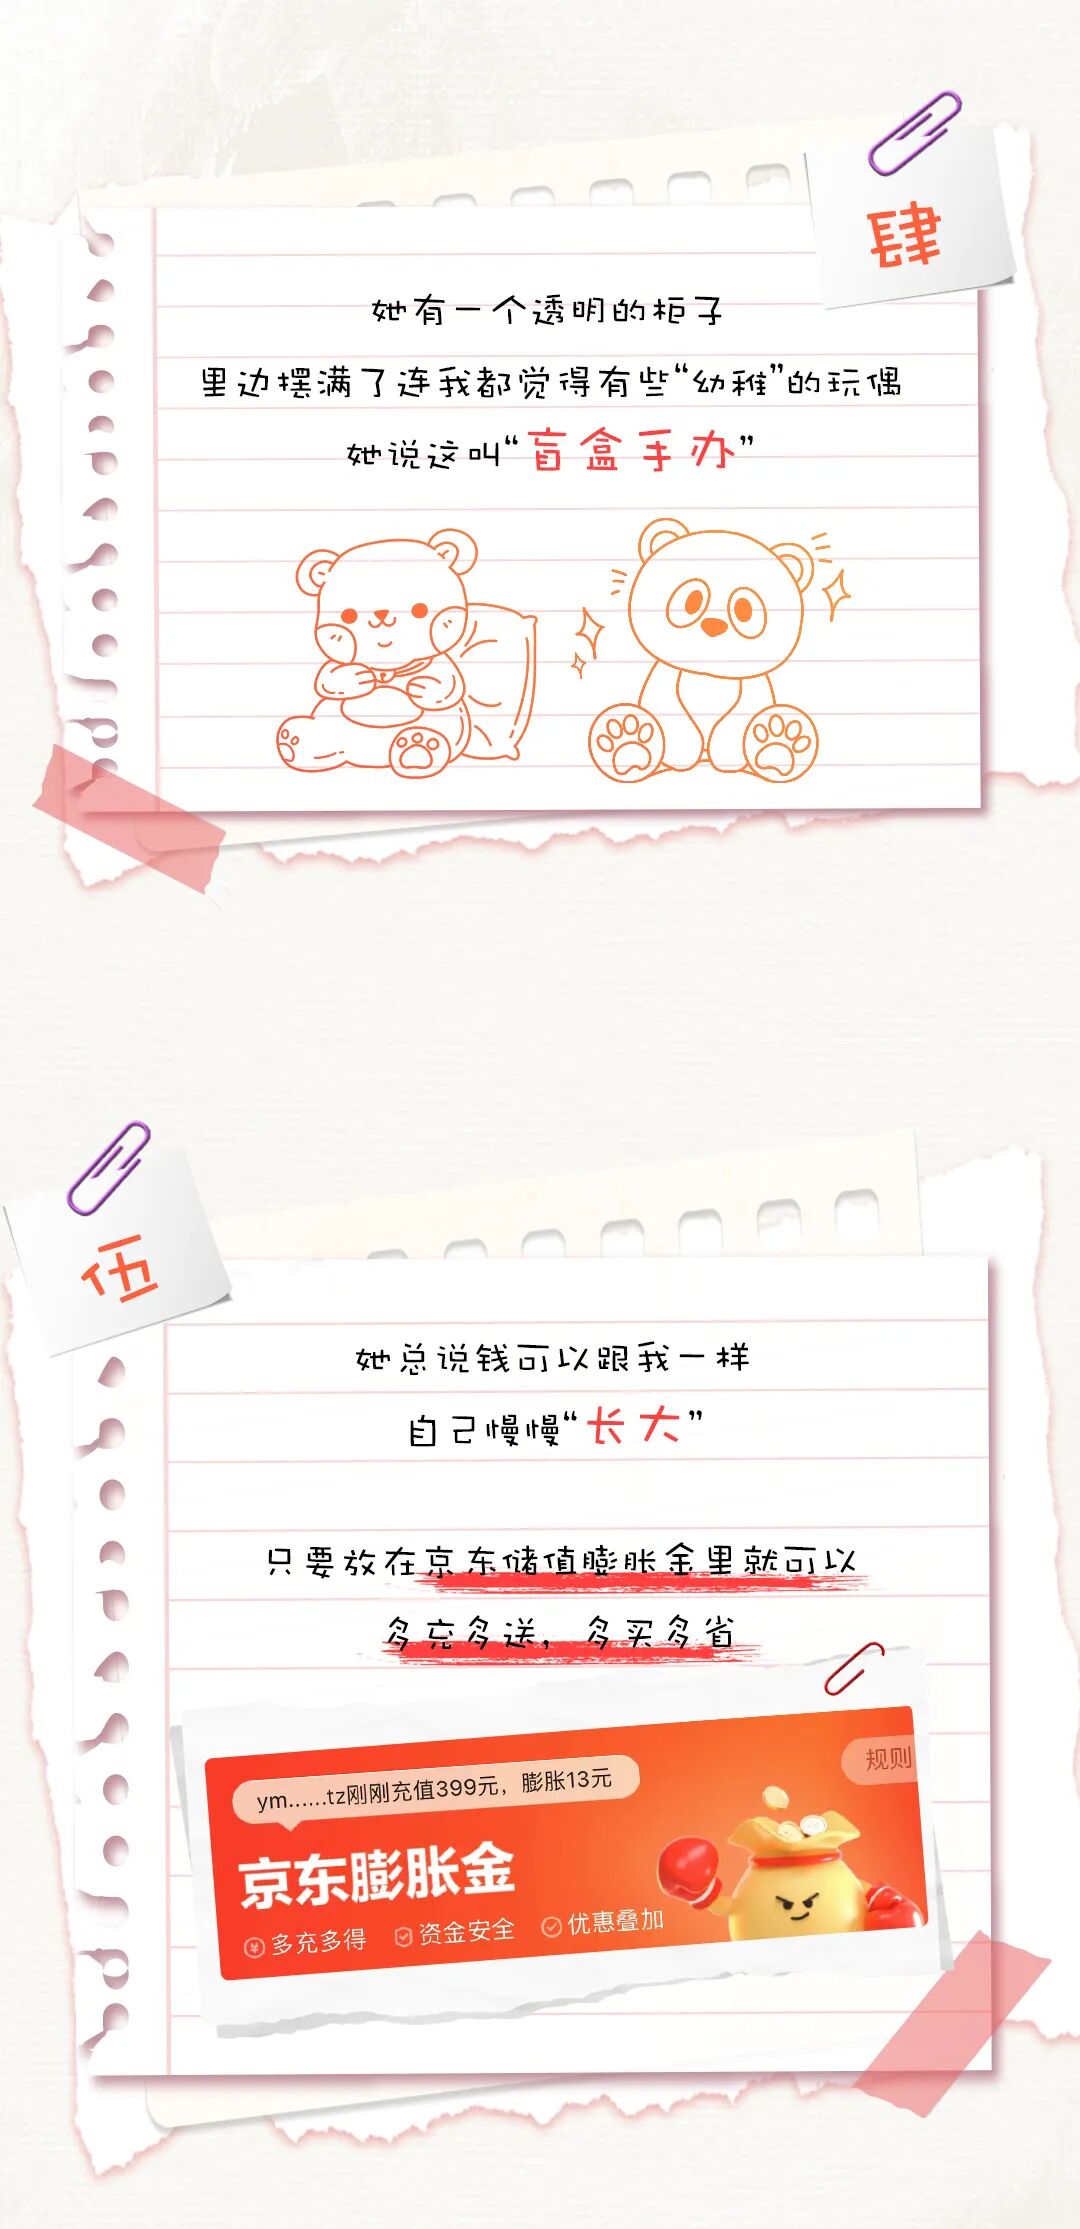 肆
她有一个透明的柜子
里边摆满了连我都觉得有些“幼稚”的玩偶
她说这叫“盲盒手办”
伍
她总说钱可以跟我一样
自己慢慢“长大”
只要放在京东储值膨胀金里就可以
多充多送，多买多省
规则
ym......tz刚刚充值399元，膨胀13元
京东膨胀金
多充多得 资金安全 优惠叠加